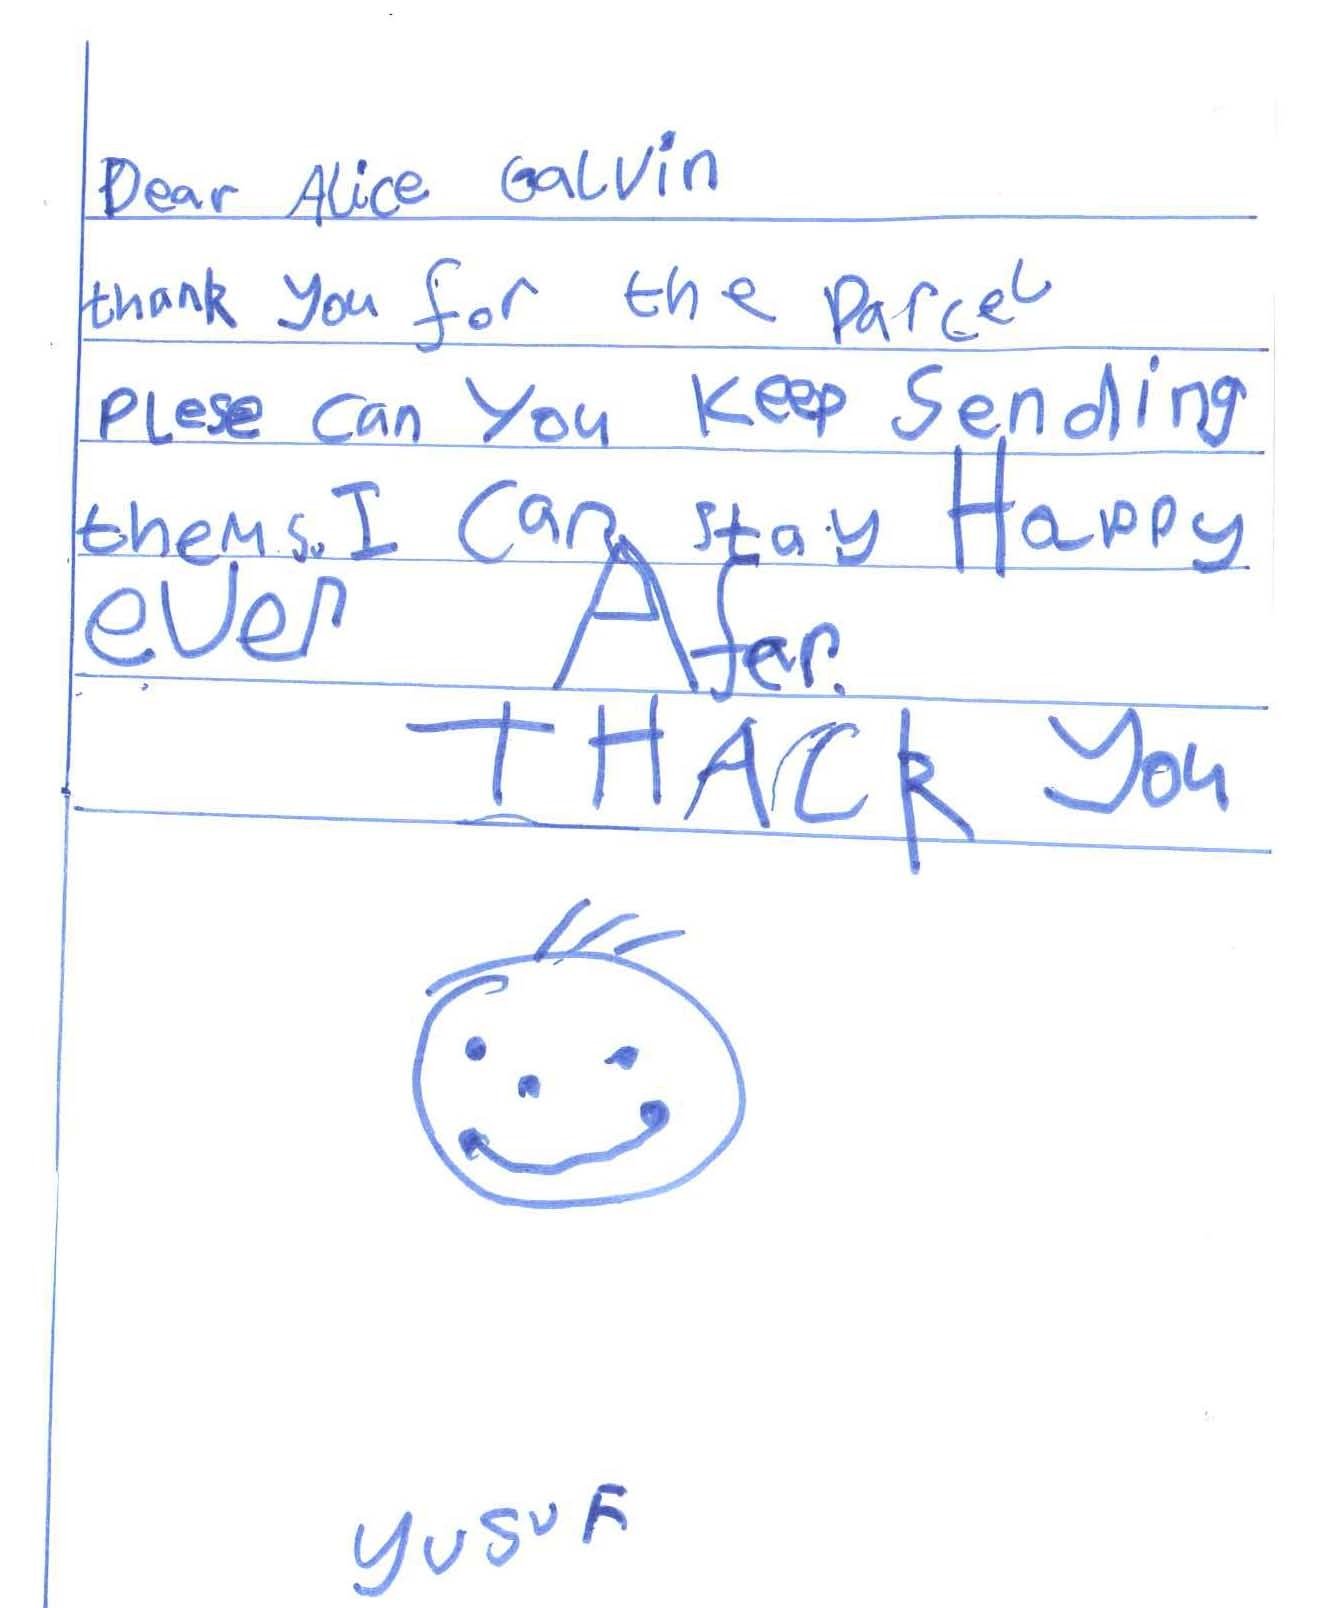 Dear Alice Galvin
thank you for the parcel
Plese can you keep sending
thems. I can stay Happy
ever Afer.
THACK you
yusuf